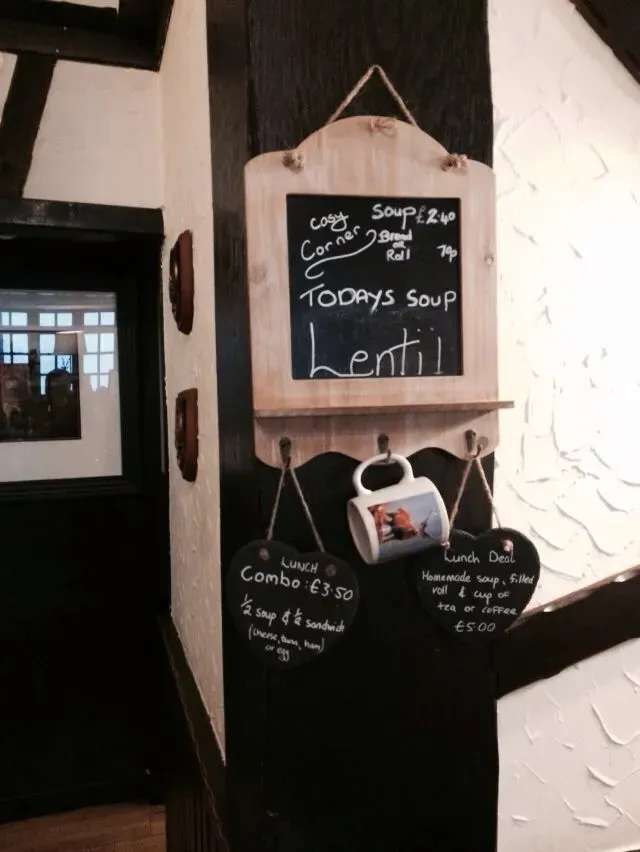 Cosy
Corner
Soup £2.40
Bread
or
Roll 70p
TODAYS SOUP
Lentil
LUNCH
Combo: £3.50
1/2 soup & 1/2 sandwich
(cheese, tuna, ham)
or egg
Lunch Deal
Homemade soup, filled
roll & cup of
tea or coffee
£5.00